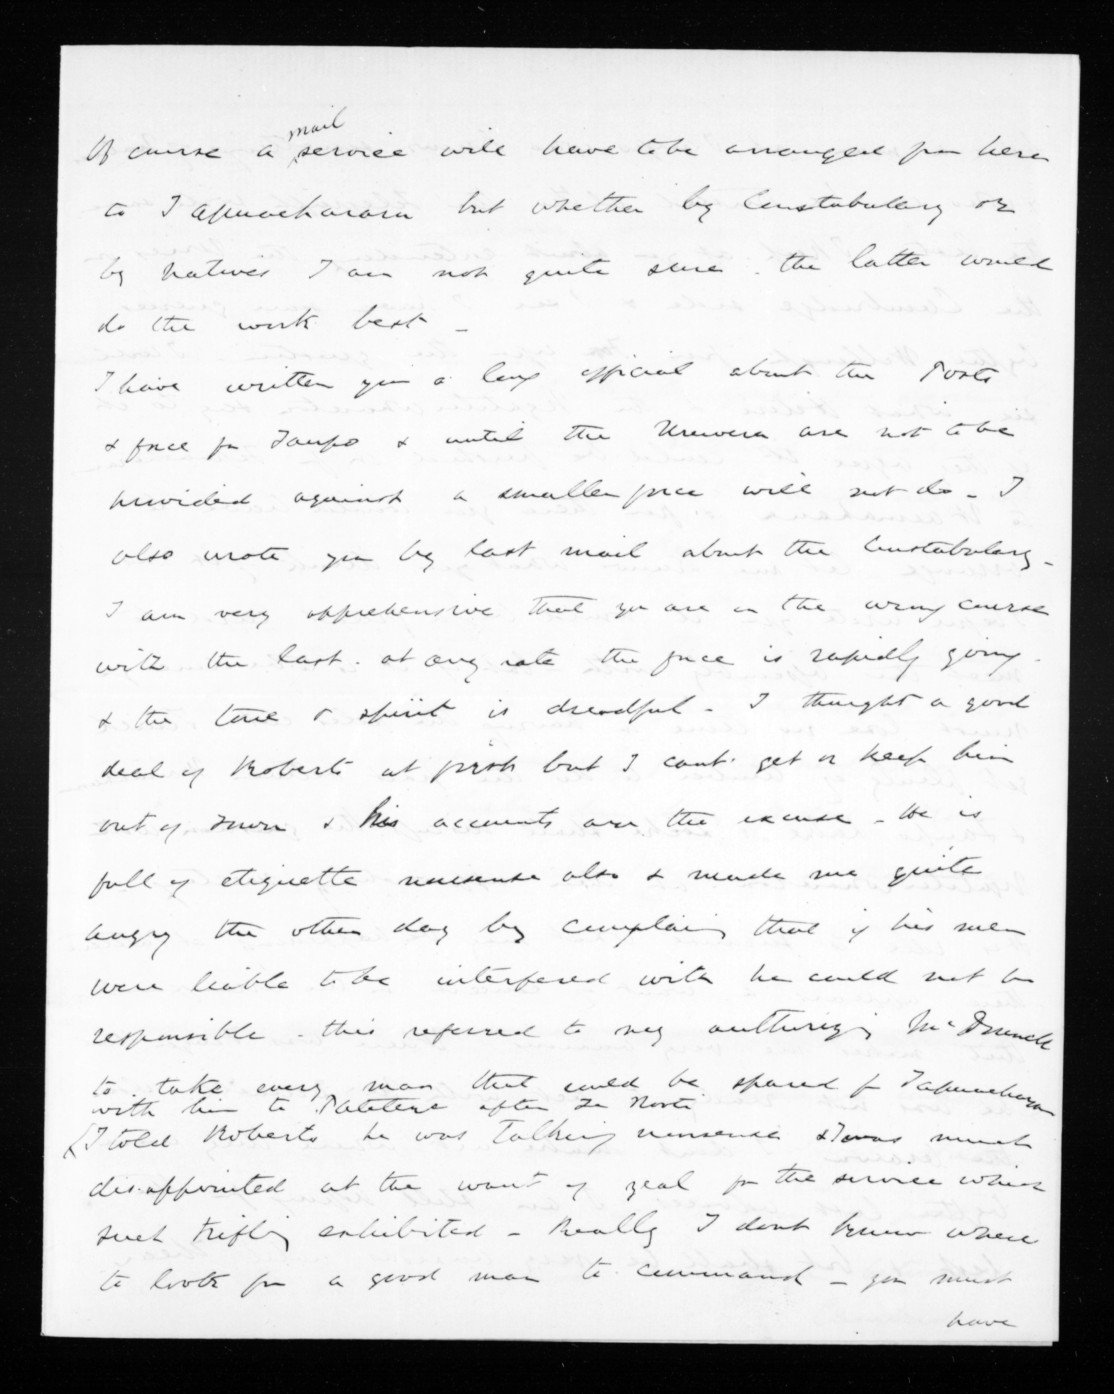 Of course a mail service will have to be arranged from here
to Tapuaeharuru but whether by Constabulary or
by Natives I am not quite sure. the latter would
do the work best -
I have written you a long official about the Posts
& force for Taupo & until the Urewera are not to be
provided against a smaller force will not do - I
also wrote you by last mail about the Constabulary -
I am very apprehensive that you are on the wrong course
with the last. at any rate the force is rapidly going
& the tone & spirit is dreadful - I thought a good
deal of Roberts at first but I cant get or keep him
out of Town & his accounts are the excuse - He is
full of etiquette nonsense also & made me quite
angry the other day by complaining that if his men
were liable to be interfered with he could not be
responsible - this referred to my authorizing McDonnell
to take every man that could be spared from Tapuaeharuru
with him to Patetere after Te Kooti
(I told Roberts he was talking nonsense & I was much
disappointed at the want of zeal for the service which
such trifling exhibited - Really I dont know where
to look for a good man to command - you must
have